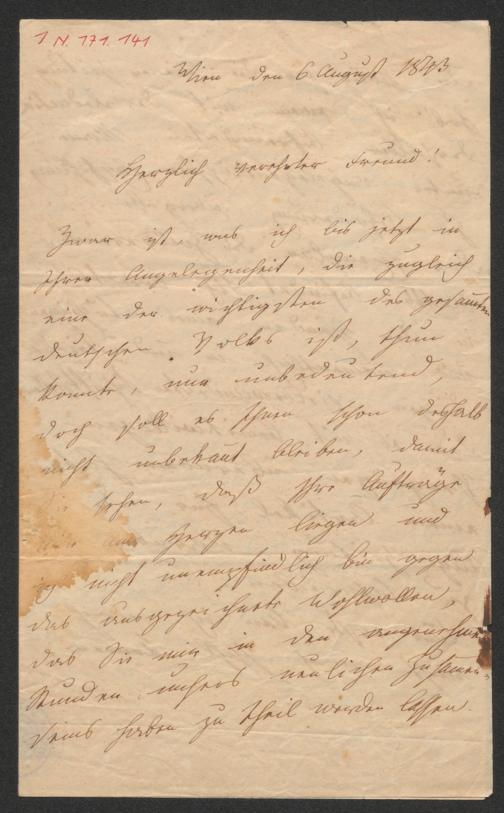 I. N. 171.141
Wien den 6 August 1843
Herzlich verehrter Freund!
Zwar ist was ich bis jetzt in
Ihrer Angelegenheit, die zugleich
eine der wichtigsten des gesamten
deutschen Volks ist, thun
konnte, nur unbedeutend,
doch soll es Ihnen schon deshalb
nicht unbekañt bleiben, damit
sehen, daß Ihre Aufträge
am Herzen liegen und
ich nicht unempfindlich bin gegen
das ausgezeichnete Wohlwollen,
das Sie mir in den angenehmen
Stunden unsers neulichen Zusamen-
seins haben zu theil werden lassen.